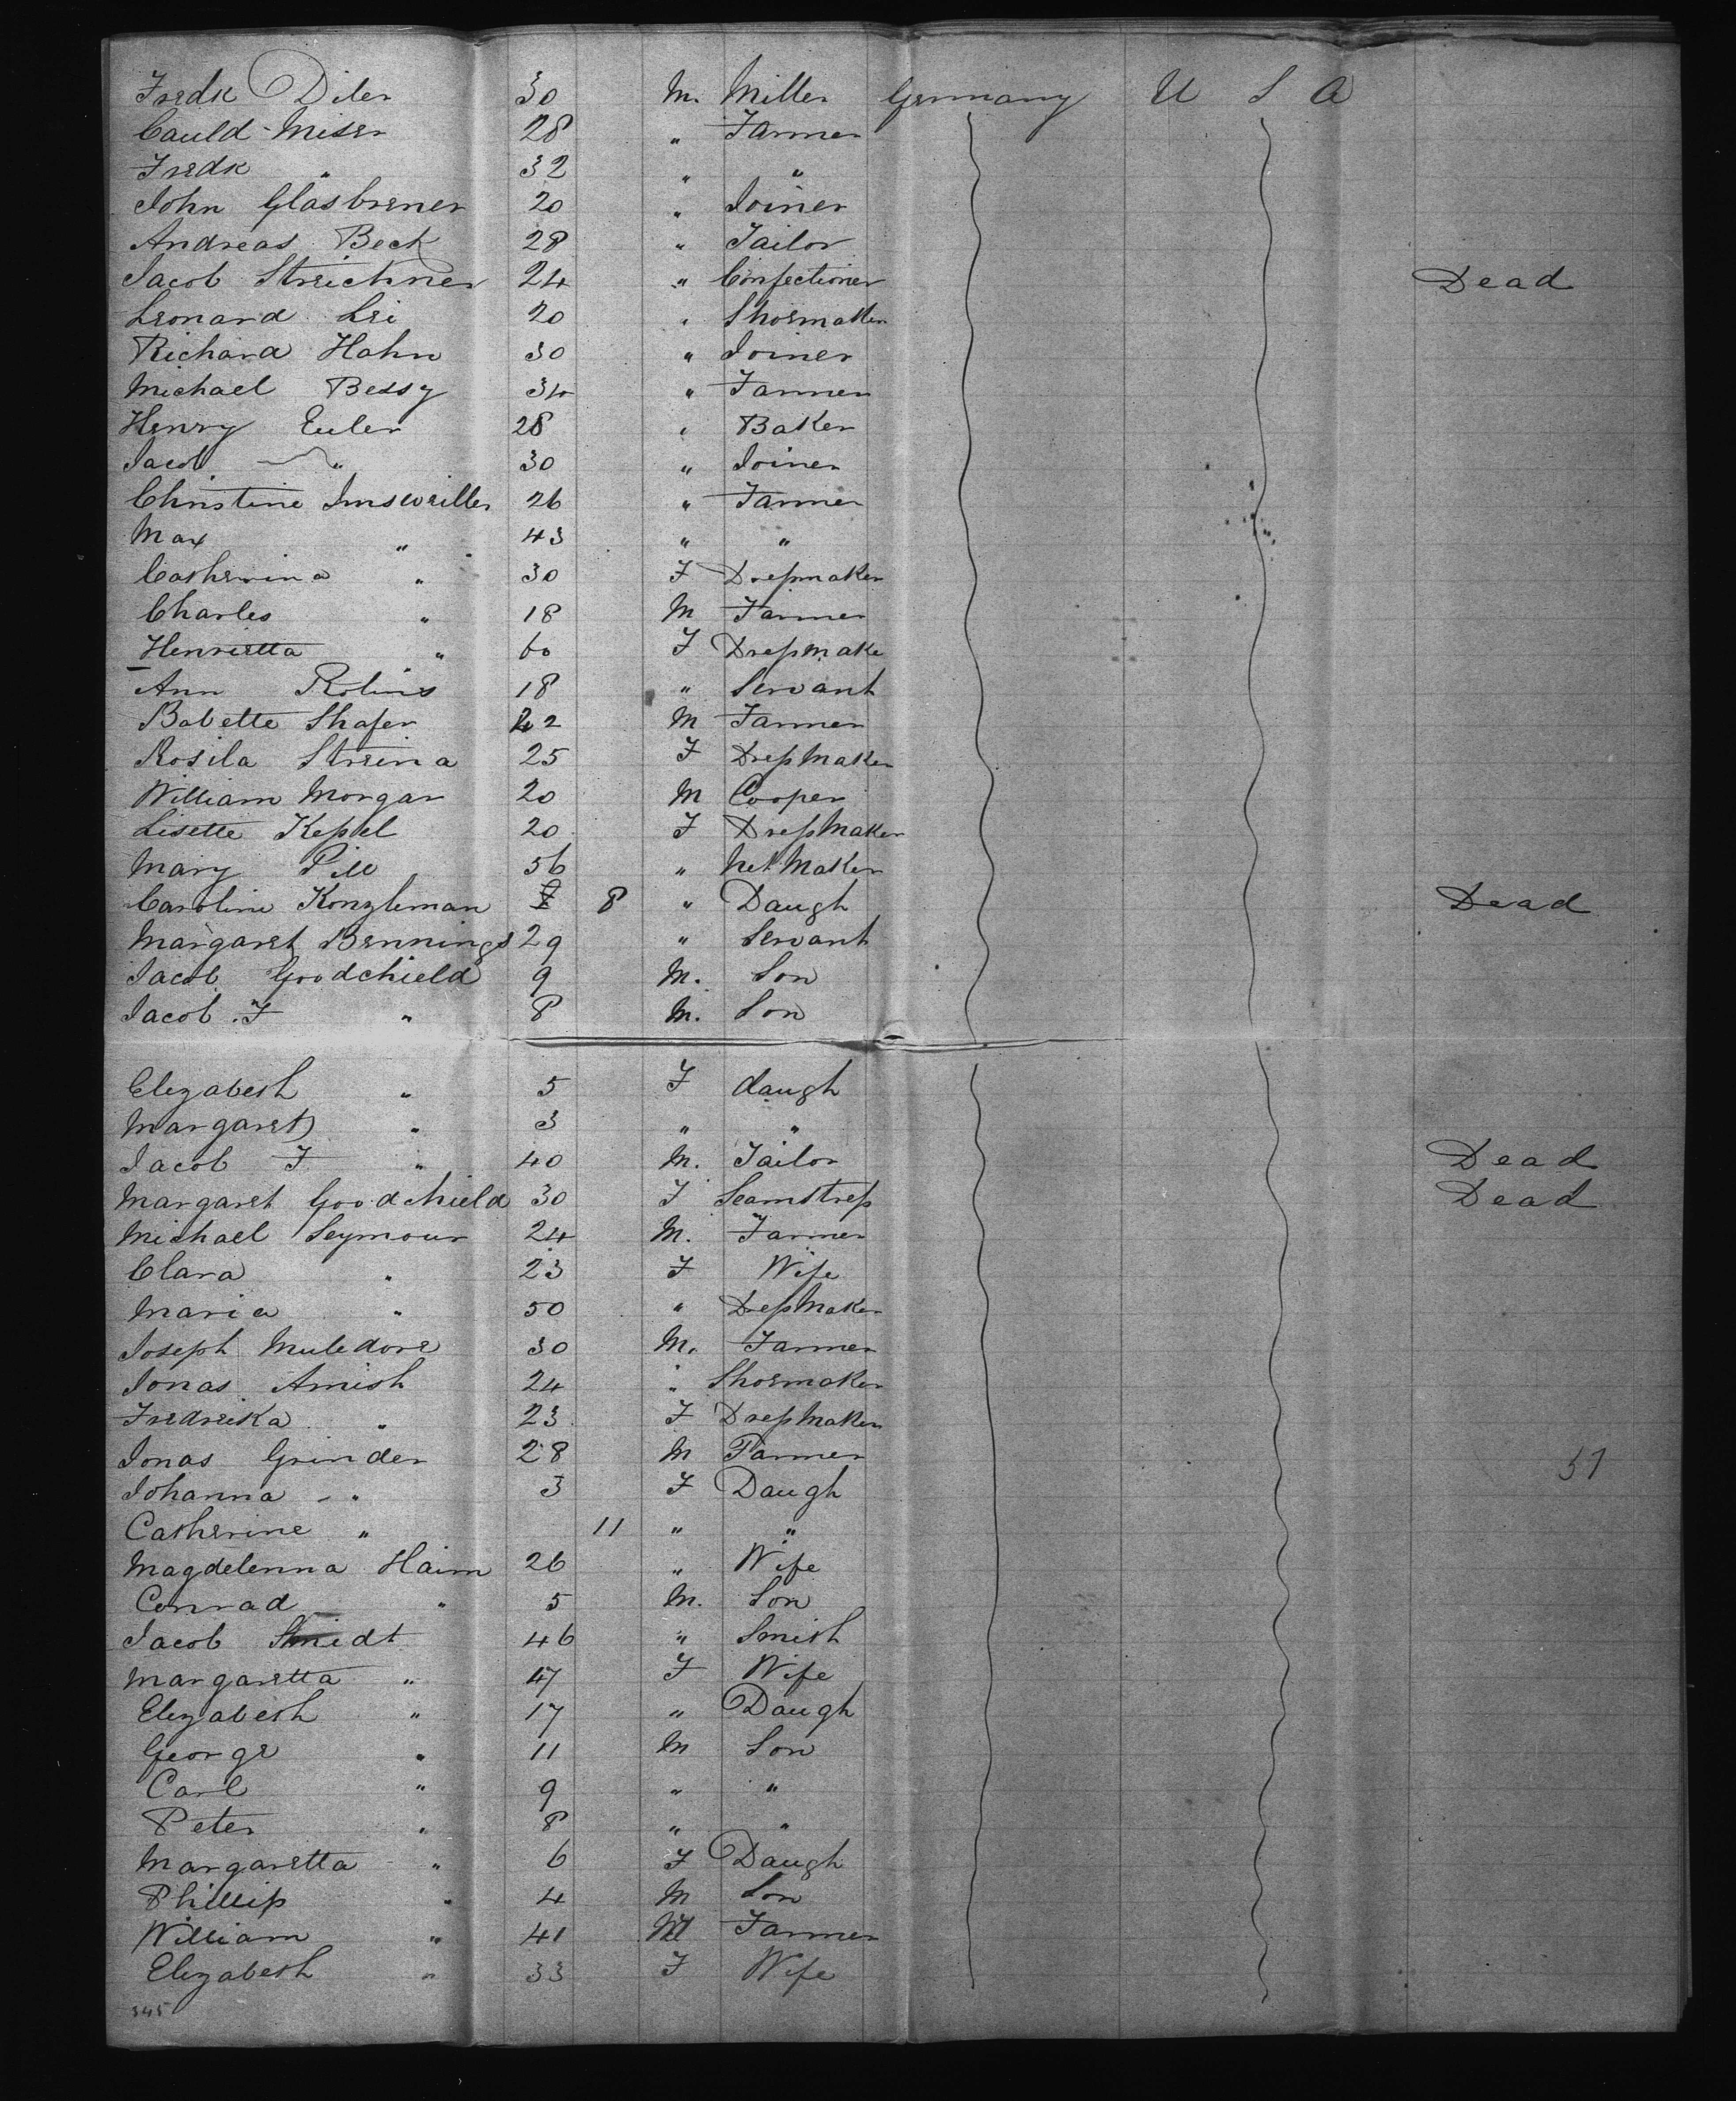 Fredk Diler 30 M. Miller Germany U S A
Cauld Miser 28 " Farmer
Fredk " 32 " "
John Glasbrener 20 " Joiner
Andreas Beck 28 " Tailor
Jacob Streichner 24 " Confectioner Dead
Leonard Lei 20 " Shoemaker
Richard Hahn 30 " Joiner
Michael Bessy 34 " Farmer
Henry Euler 28 " Baker
Jacob " 30 " Joiner
Christine Imsweiller 26 " Farmer
Max " 43 " "
Catherina " 30 F Dressmaker
Charles " 18 M Farmer
Henrietta " 60 F Dressmake
Ann Rolins 18 " Servant
Babette Shafer 42 M Farmer
Rosila Streina 25 F DressMaker
William Morgar 20 M Cooper
Lisette Keppel 20 F DressMaker
Mary Pill 56 " Net Maker
Caroline Konzleman 8 " Daugh Dead
Margaret Bennings 29 " Servant
Jacob Goodchield 9 M. Son
Jacob F " 8 M. Son
Elezabeth " 5 F daugh
Margaret " 3 " "
Jacob F " 40 M. Tailor Dead
Margaret Goodchield 30 F Seamstress Dead
Michael Seymour 24 M. Farmer
Clara " 23 F Wife
Maria " 50 " DessMaker
Joseph Muledore 30 M. Farmer
Jonas Amish 24 " Shoemaker
Fredreika " 23 F DressMaker
Jonas Grinder 28 M Farmer 51
Johanna " 3 F Daugh
Catherine " 11 " "
Magdelenna Haim 26 " Wife
Conrad " 5 M. Son
Jacob Smidt 46 " Smith
Margaretta " 47 F Wife
Elezabeth " 17 " Daugh
George " 11 M Son
Carl " 9 " "
Peter " 8 " "
Margaretta " 6 F Daugh
Phillip " 4 M Son
William " 41 M Farmer
Elezabeth " 33 F Wife
345